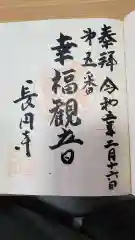 奉拝 令和六年二月廿六日
第五番
幸福観音
長円寺